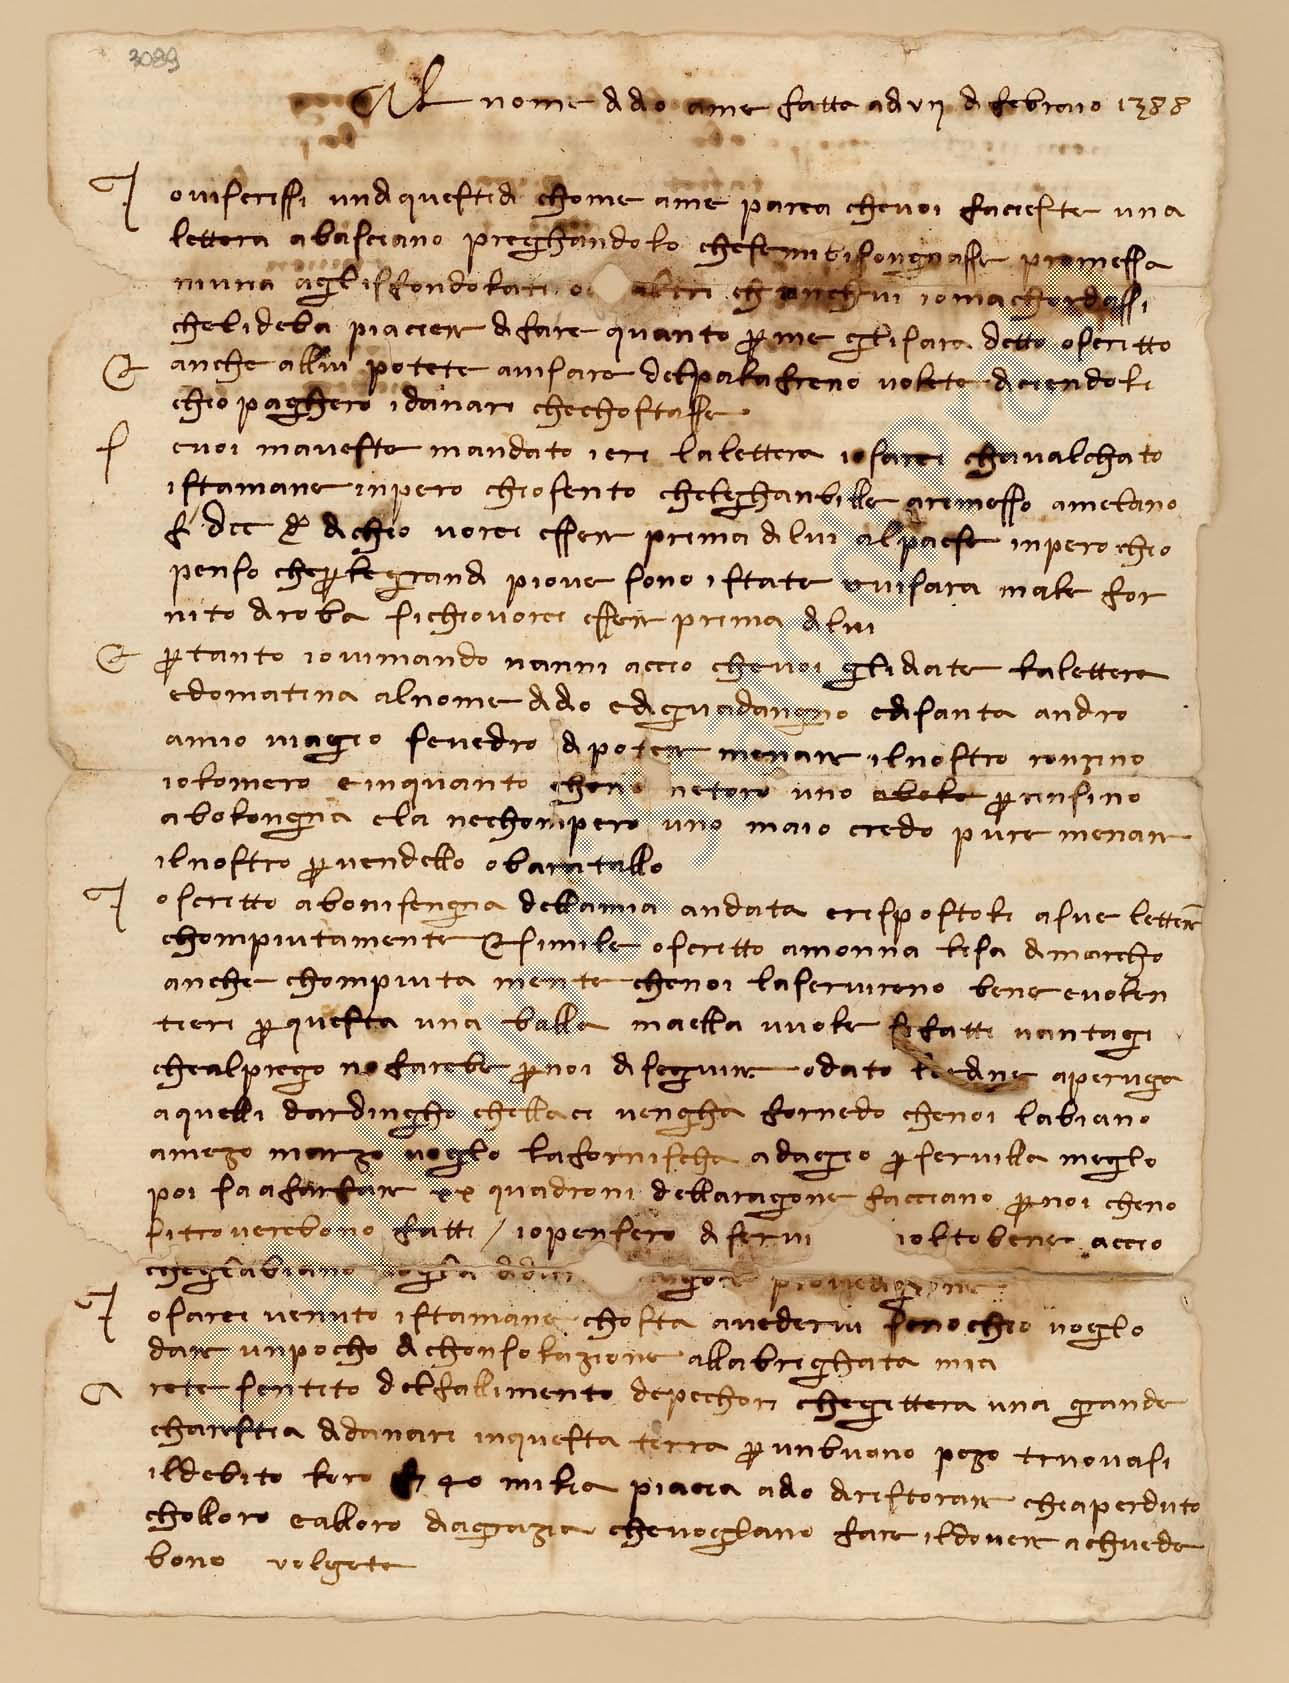 3089
Al nome d dio ame fatta ad vij di febraio 1388
Io viscrissi undiquestidi chome ame parea chevoi facieste una
lettera abasciano preghandolo chesennubisongnasse promessa
niuna aglisfondolati o altri ch anchui iomachordassi
chelideba piaciere difare quanto p me glisara detto oscritto
E anche allui potete avisare delpalafreno volete diciendoli
chio paghero idanari chechostasse
S evoi maveste mandato ieri lalettera iosarei chavalchato
istamane inpero chiosento cheleghanbille aremesso ametano
f dcc dichio vorei essere prima di lui alpaese inperochio
penso chep legrandi piove sono istate evisara male for
nito diroba sichiovorei essere prima dilui
E ptanto iovimando nanni accio chevoi glidiate lalettera
edomatina alnome d dio edighuadangno edisanta andro
amio viagio sevedro dipotere menare ilnostro ronzino
iolomero einquanto cheno netoro uno abolo p ansino
abolongna ela nechompero uno maio credo pure menare
ilnostro p vendello obaratallo
Io scritto abonisengna dellamia andata erispostoli asue lettere
chompiutamente Esimile oscritto amonna lisa dimarcho
anche chompiuta mente chenoi laserviremo bene evolen
tieri p questa una balla maella vuole sifatti vantagi
chealpiego nofarebe pnoi diseguire odato lordine aperugia
aquelli dardingho chellaci vengha fornedo chenoi labiano
amezo marzo voglo lafornischa adagio p servilla meglo
poi fa afarfare xx quadroni dellaragone facciano pnoi cheno
sitroverebono fatti / iopensero di servi ioltobene accio
chegrabiano provedigione
Io sarei venuto istamane chosta avedervi senochio voglo
dare unpocho dichonsolazione allabrighata mia
A rete sentito delfallimento depechori chegittera una grande
charestia didanari inquesta terra p unbuono pezo truovasi
ildebito loro f 40 milia piacia adio diristorare chiaperduto
cholloro ealloro diagrazia chevoglano fare ildovere achuede
bono volgete